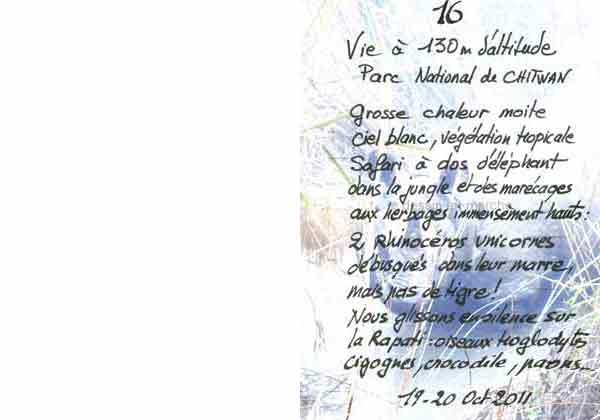 16
Vie à 130m d'altitude
Parc National de CHITWAN
Grosse chaleur moite
Ciel blanc, végétation tropicale
Safari à dos d'éléphant
dans la jungle et des marécages
aux herbages immensément hauts:
2 Rhinocéros unicornes
débusqués dans leur marre,
mais pas de tigre!
Nous glissons en silence sur
la Rapati: oiseaux troglodytes
cigognes, crocodile, paons...
19-20 Oct 2011